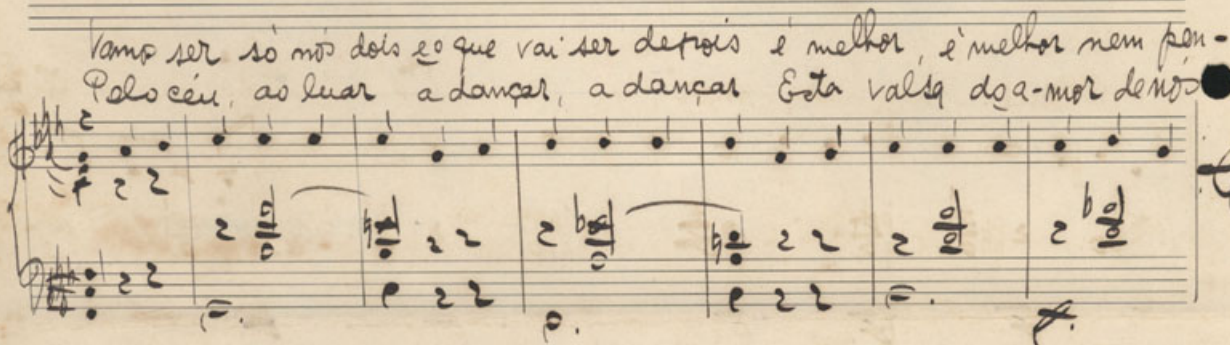 Vamo ser só nós dois e o que vai ser depois é melhor, é melhor nem pen-
Pelo céu, ao luar a dançar, a dançar Esta valsa do a-mor de nós